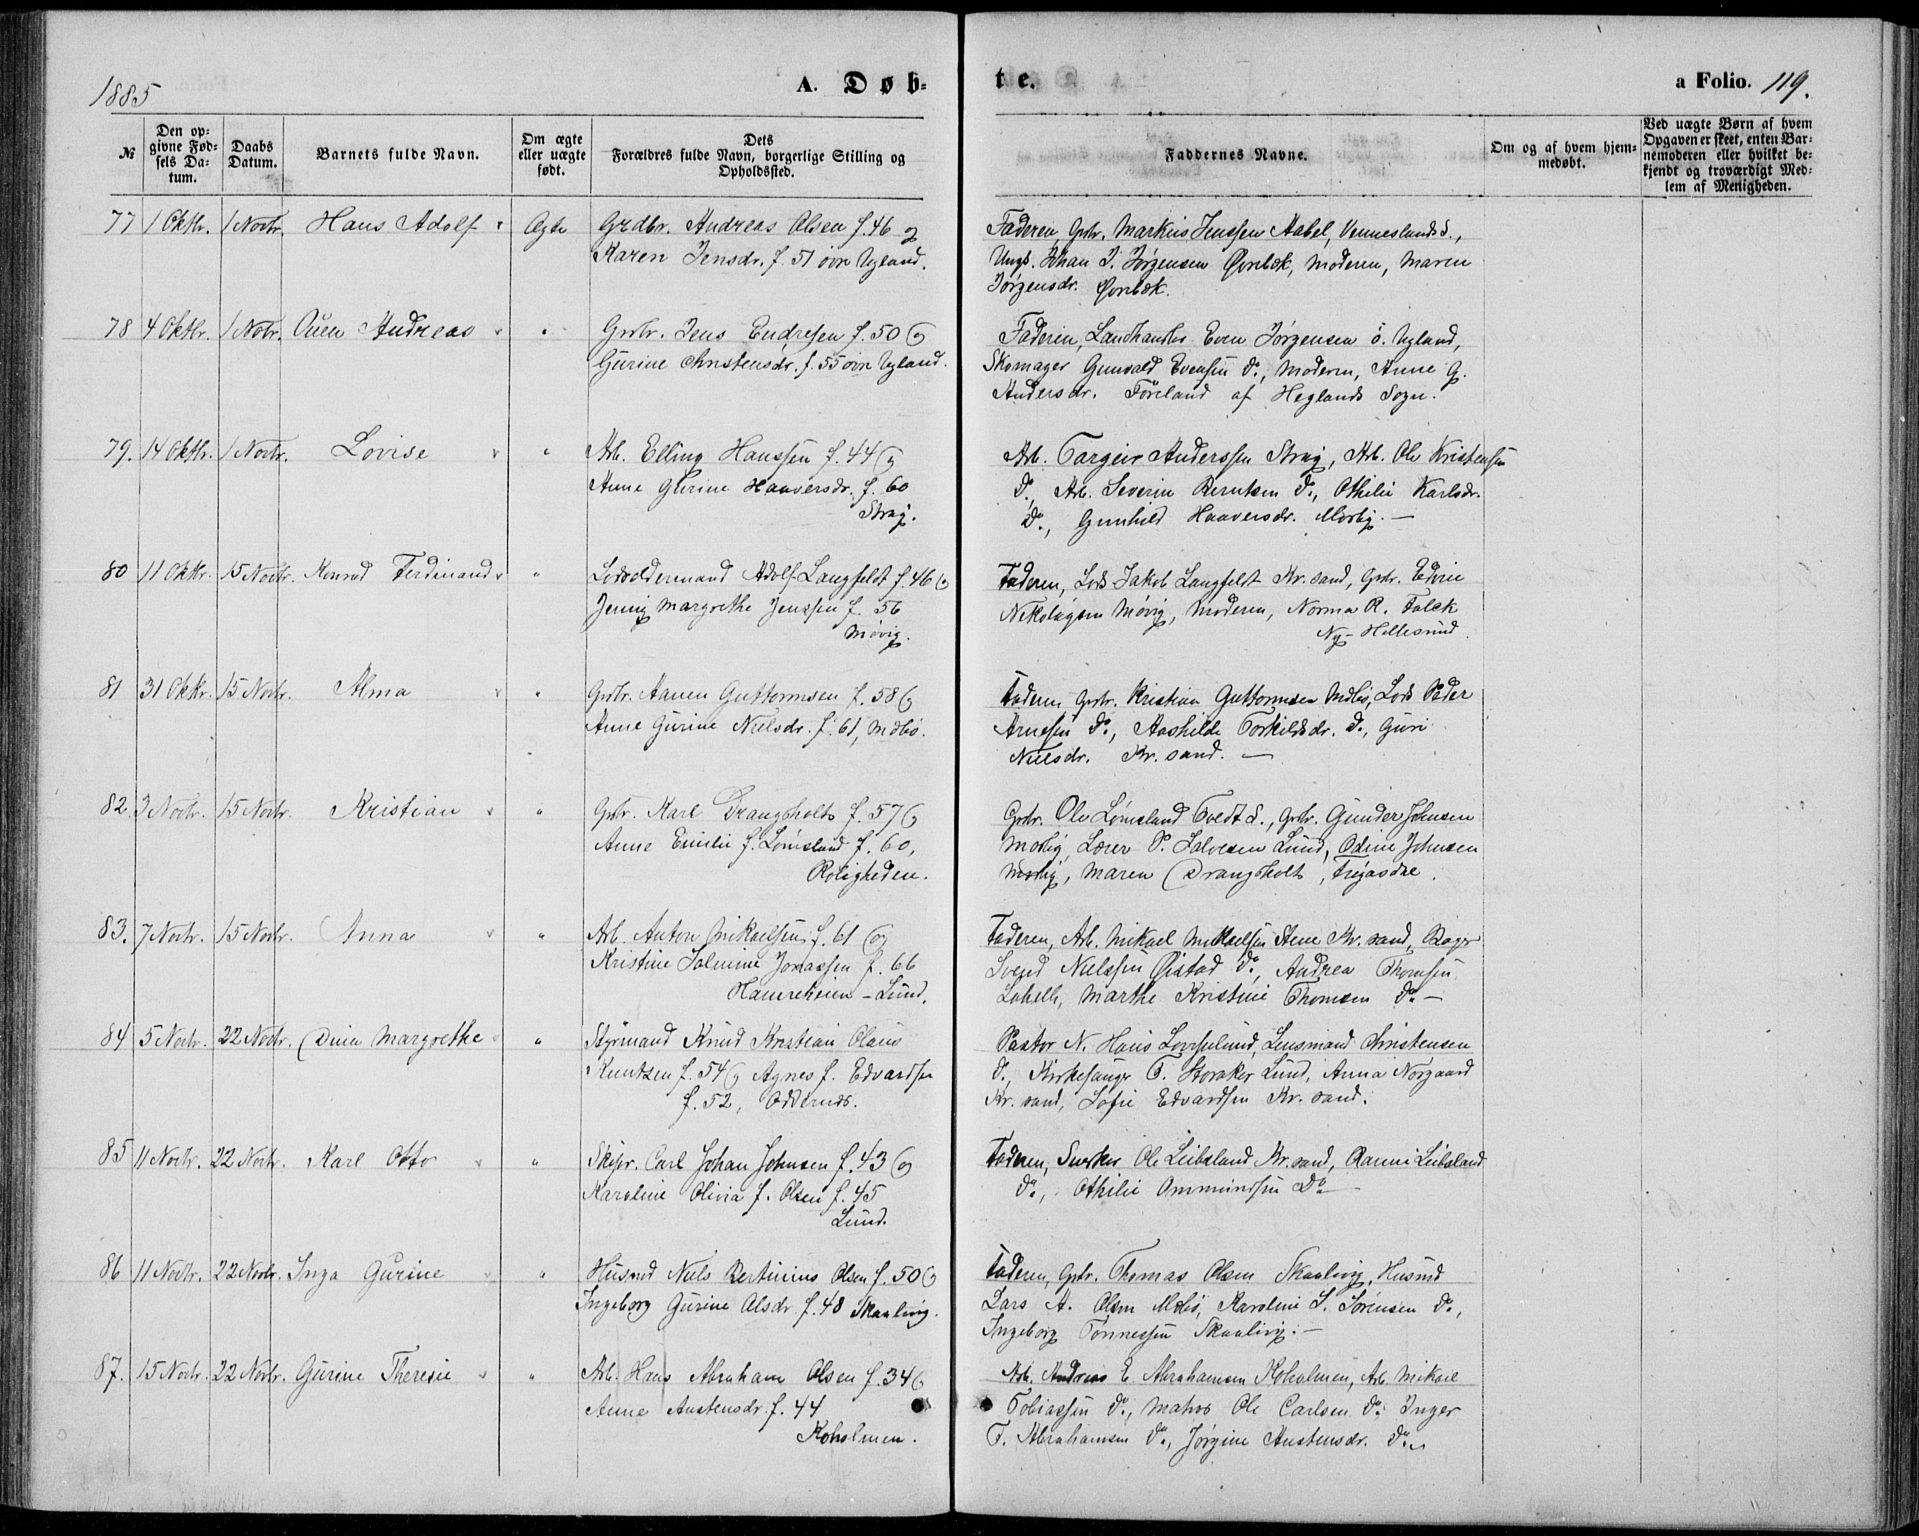 1885
A. Døb-
te.
a Folio. 119.
№
Den op-
givne Fød-
sels Da-
tum.
Daabs
Datum.
Barnets fulde Navn.
Om ægte
eller uægte
født.
Dets
Forældres fulde Navn, borgerlige Stilling og
Opholdssted.
Faddernes Navne.
Om og af hvem hjem-
medøbt.
Ved uægte Børn af hvem
Opgaven er skeet, enten Bar-
nemoderen eller hvilket be-
kjendt og troværdigt Med-
lem af Menigheden.
77 1 Oktr. 1 Novbr. Hans Adolf " Ægte Grdbr. Andreas Olsen f. 46 og
Karen Jensdr. f. 51 øvr. Vgland.
Faderen, Grbr. Markus Jenssen Aabel, Venneslands S.,
Ungk. Johan J. Jørgensen Øvrebæk, Moderen, Maren
Jørgensdr. Øvrebæk.
78 4 Oktr. 1 Nobr. Ouen Andreas " " Grbr. Jens Endresen f. 50 og
Gurine Christensdr. f. 55 øvr Vgland.
Faderen, Landhandler Even Jørgensen ö. Vgland,
Skomager Gunvald Evensen do, Moderen, Anne G.
Andersdr. Föreland af Heglands Sogn.
79. 14 Oktr. 1 Novbr. Lovise " " Arb. Elling Hanssen f. 44 og
Anne Gurine Haaversdr. f. 60
Stray.
Arb. Targeir Anderssen Stray, Arb. Ole Kristensen
do, Arb. Severin Berntsen do, Othilie Karlsdr.
do, Gunhild Haaversdr. Mosby. —
80 11 Oktr. 15 Novbr. Konrad Ferdinand " " Lodsoldermand Adolf Langfeldt f. 46 og
Jenny Margrethe Jenssen f. 56
Møvig.
Faderen, Lods Jakob Langfeldt Kr.sand, Grbr. Edvin
Nikolaysen Møvig, Moderen, Norma R. Falck
Ny-Hellesund.
81 31 Oktr. 15 Novbr. Alma " " Grbr. Aanen Guttormsen f. 58 og
Anne Gurine Nielsdr. f. 61, Mdbö.
Faderen, Grbr. Kristian Guttormsen Mdbö, Lods Peder
Arnesen do, Aashilde Torkildsdr. do, Guri
Nielsdr. Kr.sand. —
82 3 Novbr. 15 Novbr. Kristian " " Grbr. Karl Drangsholt f. 57 og
Anne Emilie f. Lømsland f. 60,
Roligheden.
Grbr. Ole Lømsland Tvedt S., Grbr. Gunder Johnsen
Mosby, Lærer P. Salvesen Lund, Odine Johnsen
Mosby, Maren Drangsholt,
83. 7 Novbr. 15 Novbr. Anna " " Arb. Anton Mikaelsen f. 61 og
Kristine Jalmine Jonassen f. 66
Hamreheien - Lund.
Faderen, Arb. Mikael Mikaelsen Stene Kr.sand, Bager
Svend Nielssen Øistad do, Andrea Thomsen
Lahelle, Marthe Kristine Thomsen do —
84 5 Novbr. 22 Novbr. Dina Margrethe " " Styrmand Knud Kristian Olaus
Knutsen f. 54 og Agnes f. Edvardsen
f. 52, Oddernæs.
Pastor N. Hans Lund, Lensmand Christensen
do, Kirkesanger T. Storaker Lund, Anna Norgaard
Kr.sand, Sofie Edvardsen Kr.sand.
85 11 Novbr. 22 Novbr. Karl Otto " " Skipr. Carl Johan Johnsen f. 43 og
Karoline Olivia f. Olsen f. 45
Lund.
Faderen, Snerker Ole Leibsland Kr.sand, Leibsland
do, Othilie Ommundsen do —
86 11 Novbr. 22 Novbr. Inga Gurine " " Husmd Niels Bertinius Olsen f. 50 og
Ingeborg Gurine Alsdr. f. 48 Skaalvig.
Faderen, Grbr. Thomas Olsen Skaalvig, Husmd
Lars A. Olsen Mdbö, Karoline S. Sørensen do,
Ingeborg Tønnessen Skaalvig. —
87. 15 Novbr. 22 Novbr. Gurine Theresie " " Arb. Hans Abraham Olsen f. 34 og
Anne Austensdr. f. 44
Koholmen.
Arb. Andreas E. Abrahamsen Koholmen, Arb. Mikael
Tobiassen do, Matros Ole Carlsen do, Inger
T. Abrahamsen do, Jørgine Austensdr. do.